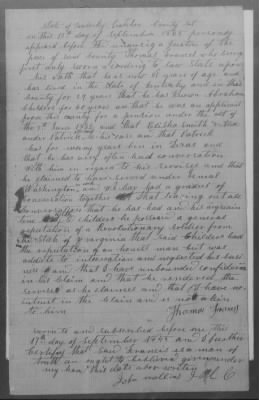 State of Kentucky Estill County Sct
on this 17th day of September 1845 personaly
appeared before the undersigned a Justice of the
peace of said county Thomas Francis who being
first duly sworn according to Law States upon
his oath that he is now 81 years of age and
has lived in the State of Kentucky and in this
county for 29 years that he has known Abraham
Childers for 60 years an that he was an applicant
from this county for a pension under the act of
the 7th June 1832 and that Elisha Smith
under Patrick
has for many years ben in Texas and
that he has very often had conversation
With him in regard to his services and that
he claimed to have served under General
Washington and we may had a gradeel of
conversation together
services that he has had and his reputation
he possess a general
reputation of a Revolutionary soldier from
the State of Virginia that said Childers had
the reputation of an honest man but was
addicte to intoxication and neglected his busi
ness and that I have unbounded confidence
in his claim and that he rendered the
services as he claimed and that I have no
interest in the claim and is not akin
to him
Thomas Francis
sworn to and subscribed before me this
17th day of September 1845 and I further
certify that said Francis is a man of
truth and ought to be believed given under
my hand this date above written
John J P E C